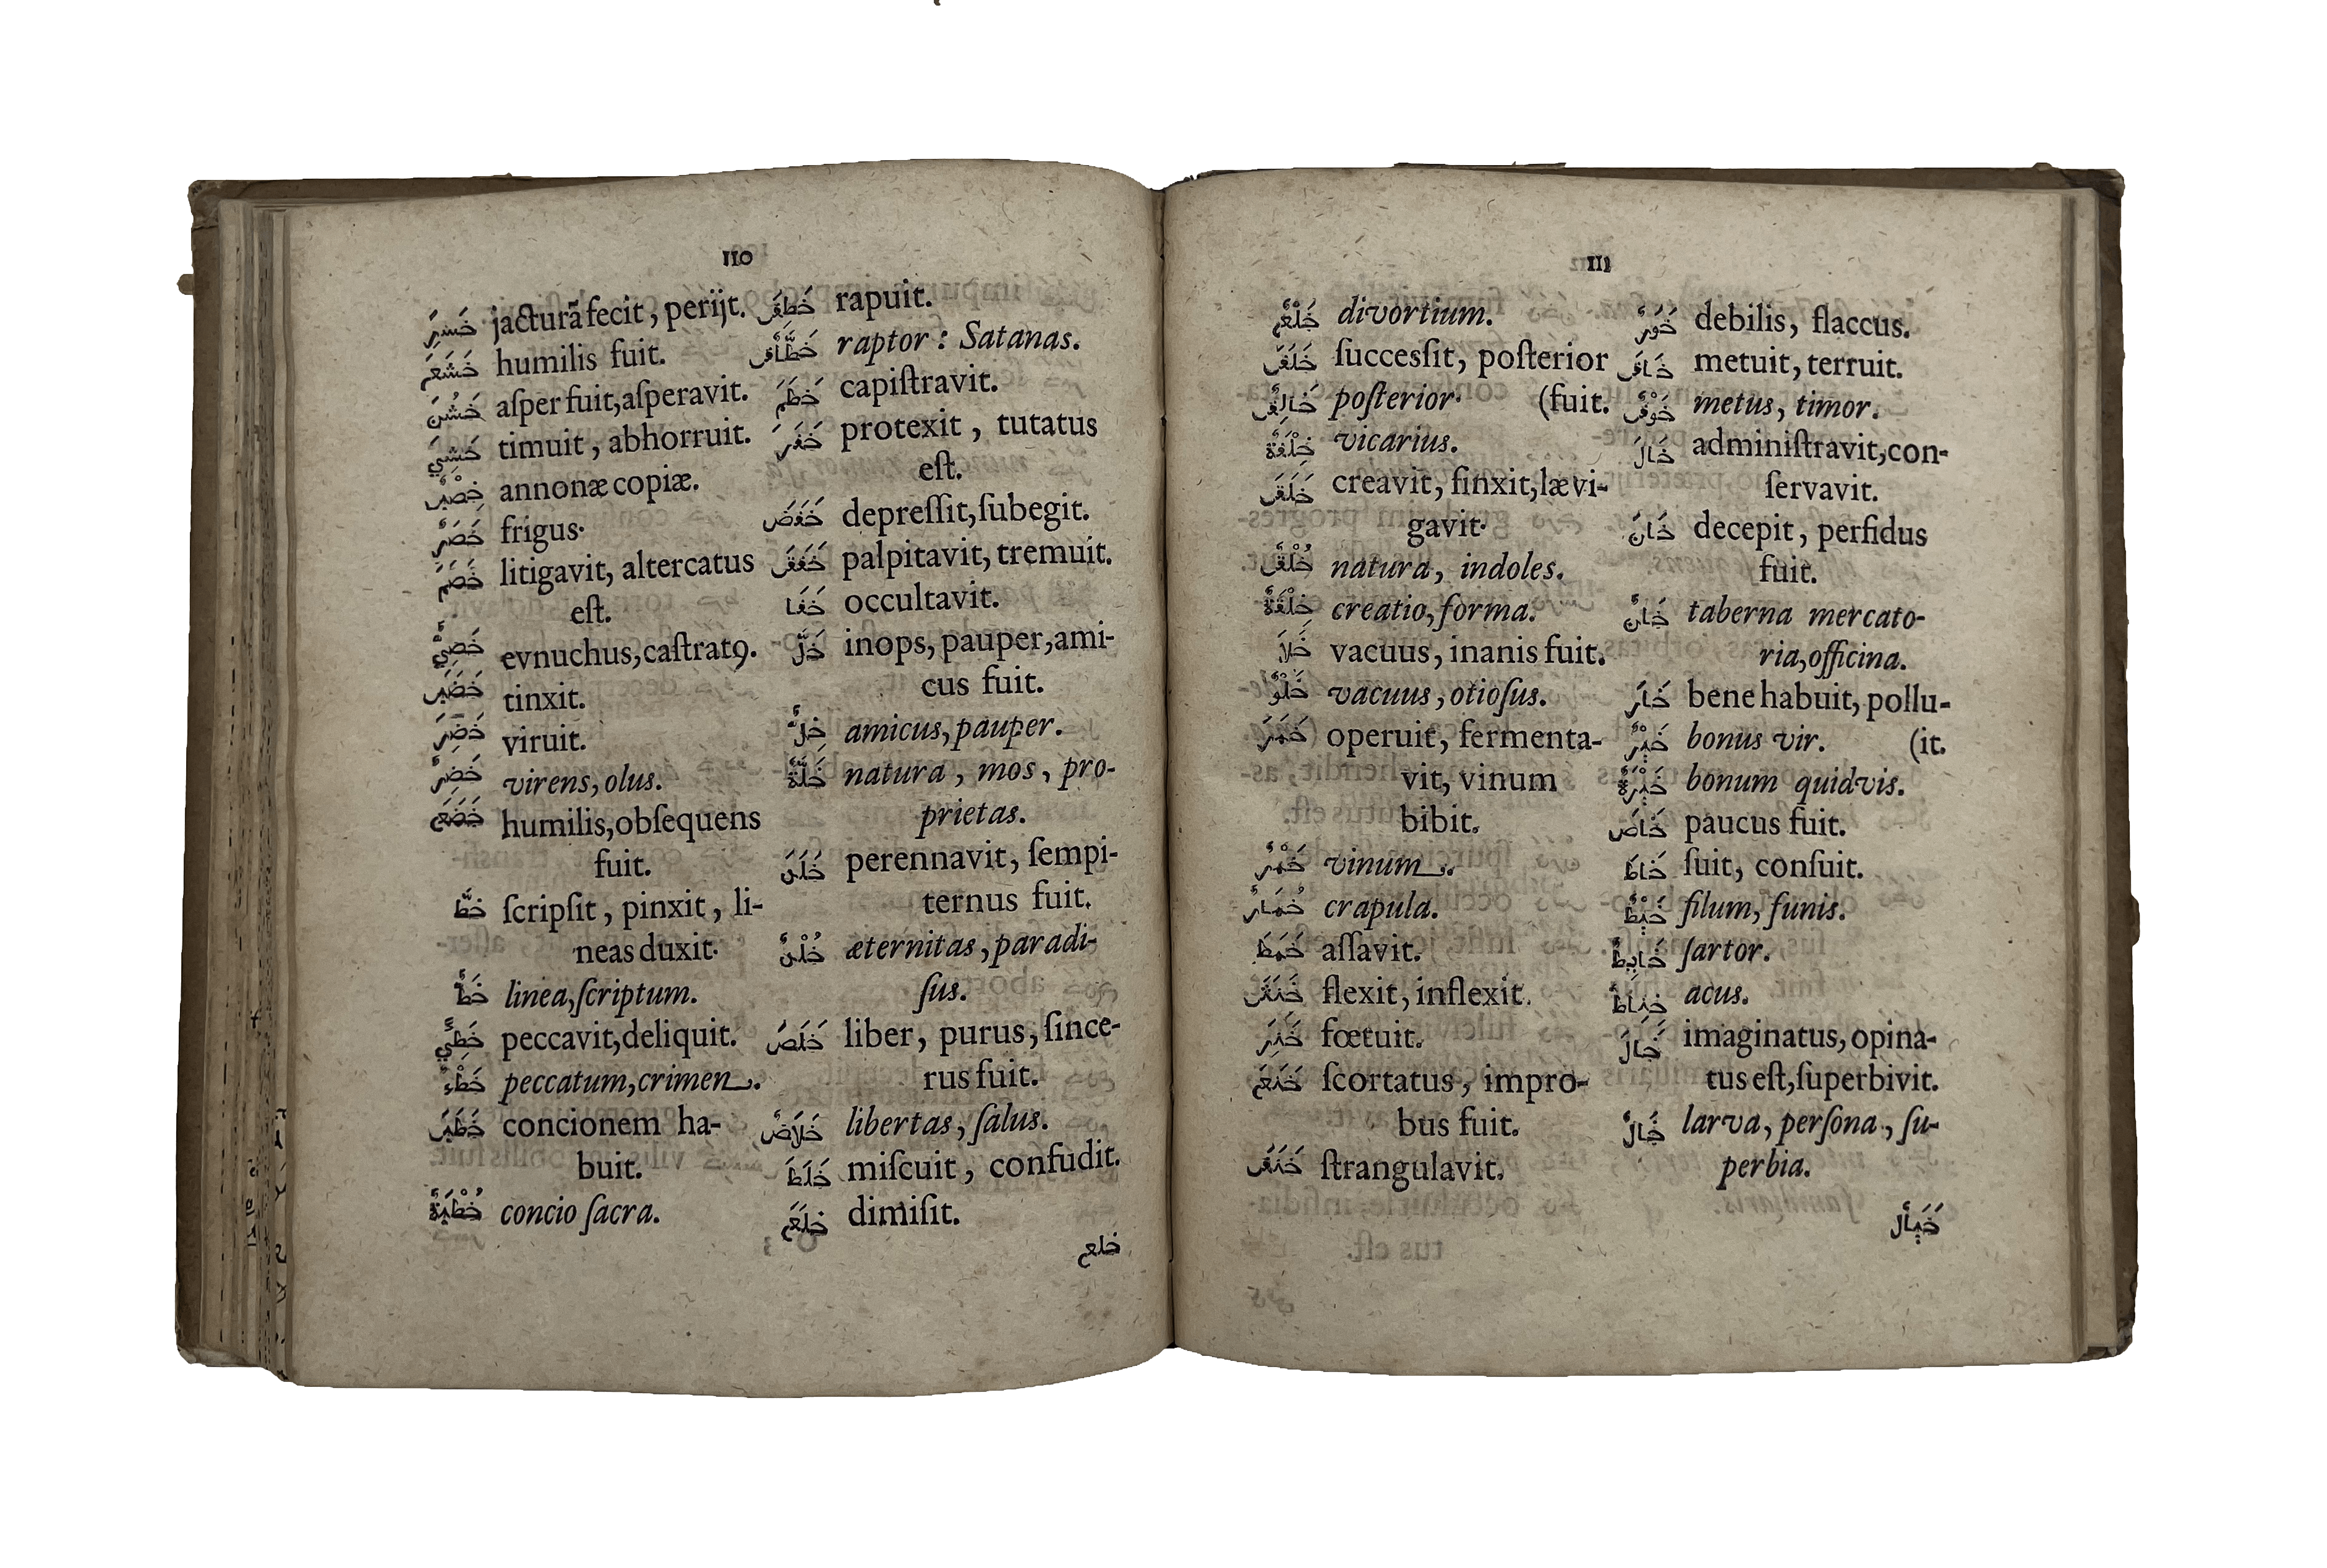 110
خَسِرَ jacturã fecit, perijt.
خَشَعَ humilis fuit.
خَشُنَ aſper fuit,aſperavit.
خَشِيَ timuit, abhorruit.
خِصْبٌ annonæ copiæ.
خَصَرٌ frigus.
خَصَمَ litigavit, altercatus
eſt.
خَصِيٌّ evnuchus,caſtratꝰ.
خَضَبَ tinxit.
خَضِرَ viruit.
خَضِرٌ virens, olus.
خَضَعَ humilis,obſequens
fuit.
خَطَّ ſcripſit, pinxit, li-
neas duxit.
خَطٌّ linea,ſcriptum.
خَطِئَ peccavit,deliquit.
خَطْءٌ peccatum,crimen.
خَطَبَ concionem ha-
buit.
خُطْبَةٌ concio ſacra.
خَطَفَ rapuit.
خَطَّافٌ raptor: Satanas.
خَطَمَ capiſtravit.
خَفَرَ protexit, tutatus
eſt.
خَفَضَ depreſſit,ſubegit.
خَفَقَ palpitavit, tremuit.
خَفَا occultavit.
خَلَّ inops, pauper,ami-
cus fuit.
خِلٌّ amicus,pauper.
خَلَّةٌ natura, mos, pro-
prietas.
خَلَدَ perennavit, ſempi-
ternus fuit.
خُلْدٌ æternitas, paradi-
ſus.
خَلَصَ liber, purus, ſince-
rus fuit.
خَلَاصٌ libertas, ſalus.
خَلَطَ miſcuit, confudit.
خلَعَ dimiſit.
خلع
111
خَلْعٌ divortium.
خَلَفَ ſucceſſit, poſterior
خَالِفٌ poſterior. (fuit.
خِلْفَةٌ vicarius.
خَلَقَ creavit, finxit,lævi-
gavit.
خُلْقٌ natura, indoles.
خِلْقَةٌ creatio, forma.
خَلَا vacuus, inanis fuit.
خَلْوٌ vacuus, otioſus.
خَمَرَ operuit, fermenta-
vit, vinum
bibit.
خَمْرٌ vinum.
خُمَارٌ crapula.
خَمَطَ aſſavit.
خَنَفَ flexit, inflexit.
خَنِزَ fœtuit.
خَنَعَ ſcortatus, impro-
bus fuit.
خَنَقَ ſtrangulavit.
خَوَرٌ debilis, flaccus.
خَافَ metuit, terruit.
خَوْفٌ metus, timor.
خَالَ adminiſtravit,con-
ſervavit.
خَانَ decepit, perfidus
fuit.
خَانٌ taberna mercato-
ria,officina.
خَارَ bene habuit, pollu-
خَيْرٌ bonus vir. (it.
خَيْرَةٌ bonum quidvis.
خَاصَ paucus fuit.
خَاطَ ſuit, conſuit.
خَيْطٌ filum, funis.
خَايِطٌ ſartor.
خِيَاطٌ acus.
خَالَ imaginatus, opina-
tus eſt,ſuperbivit.
خَالٌ larva, perſona, ſu-
perbia.
خَيَالٌ